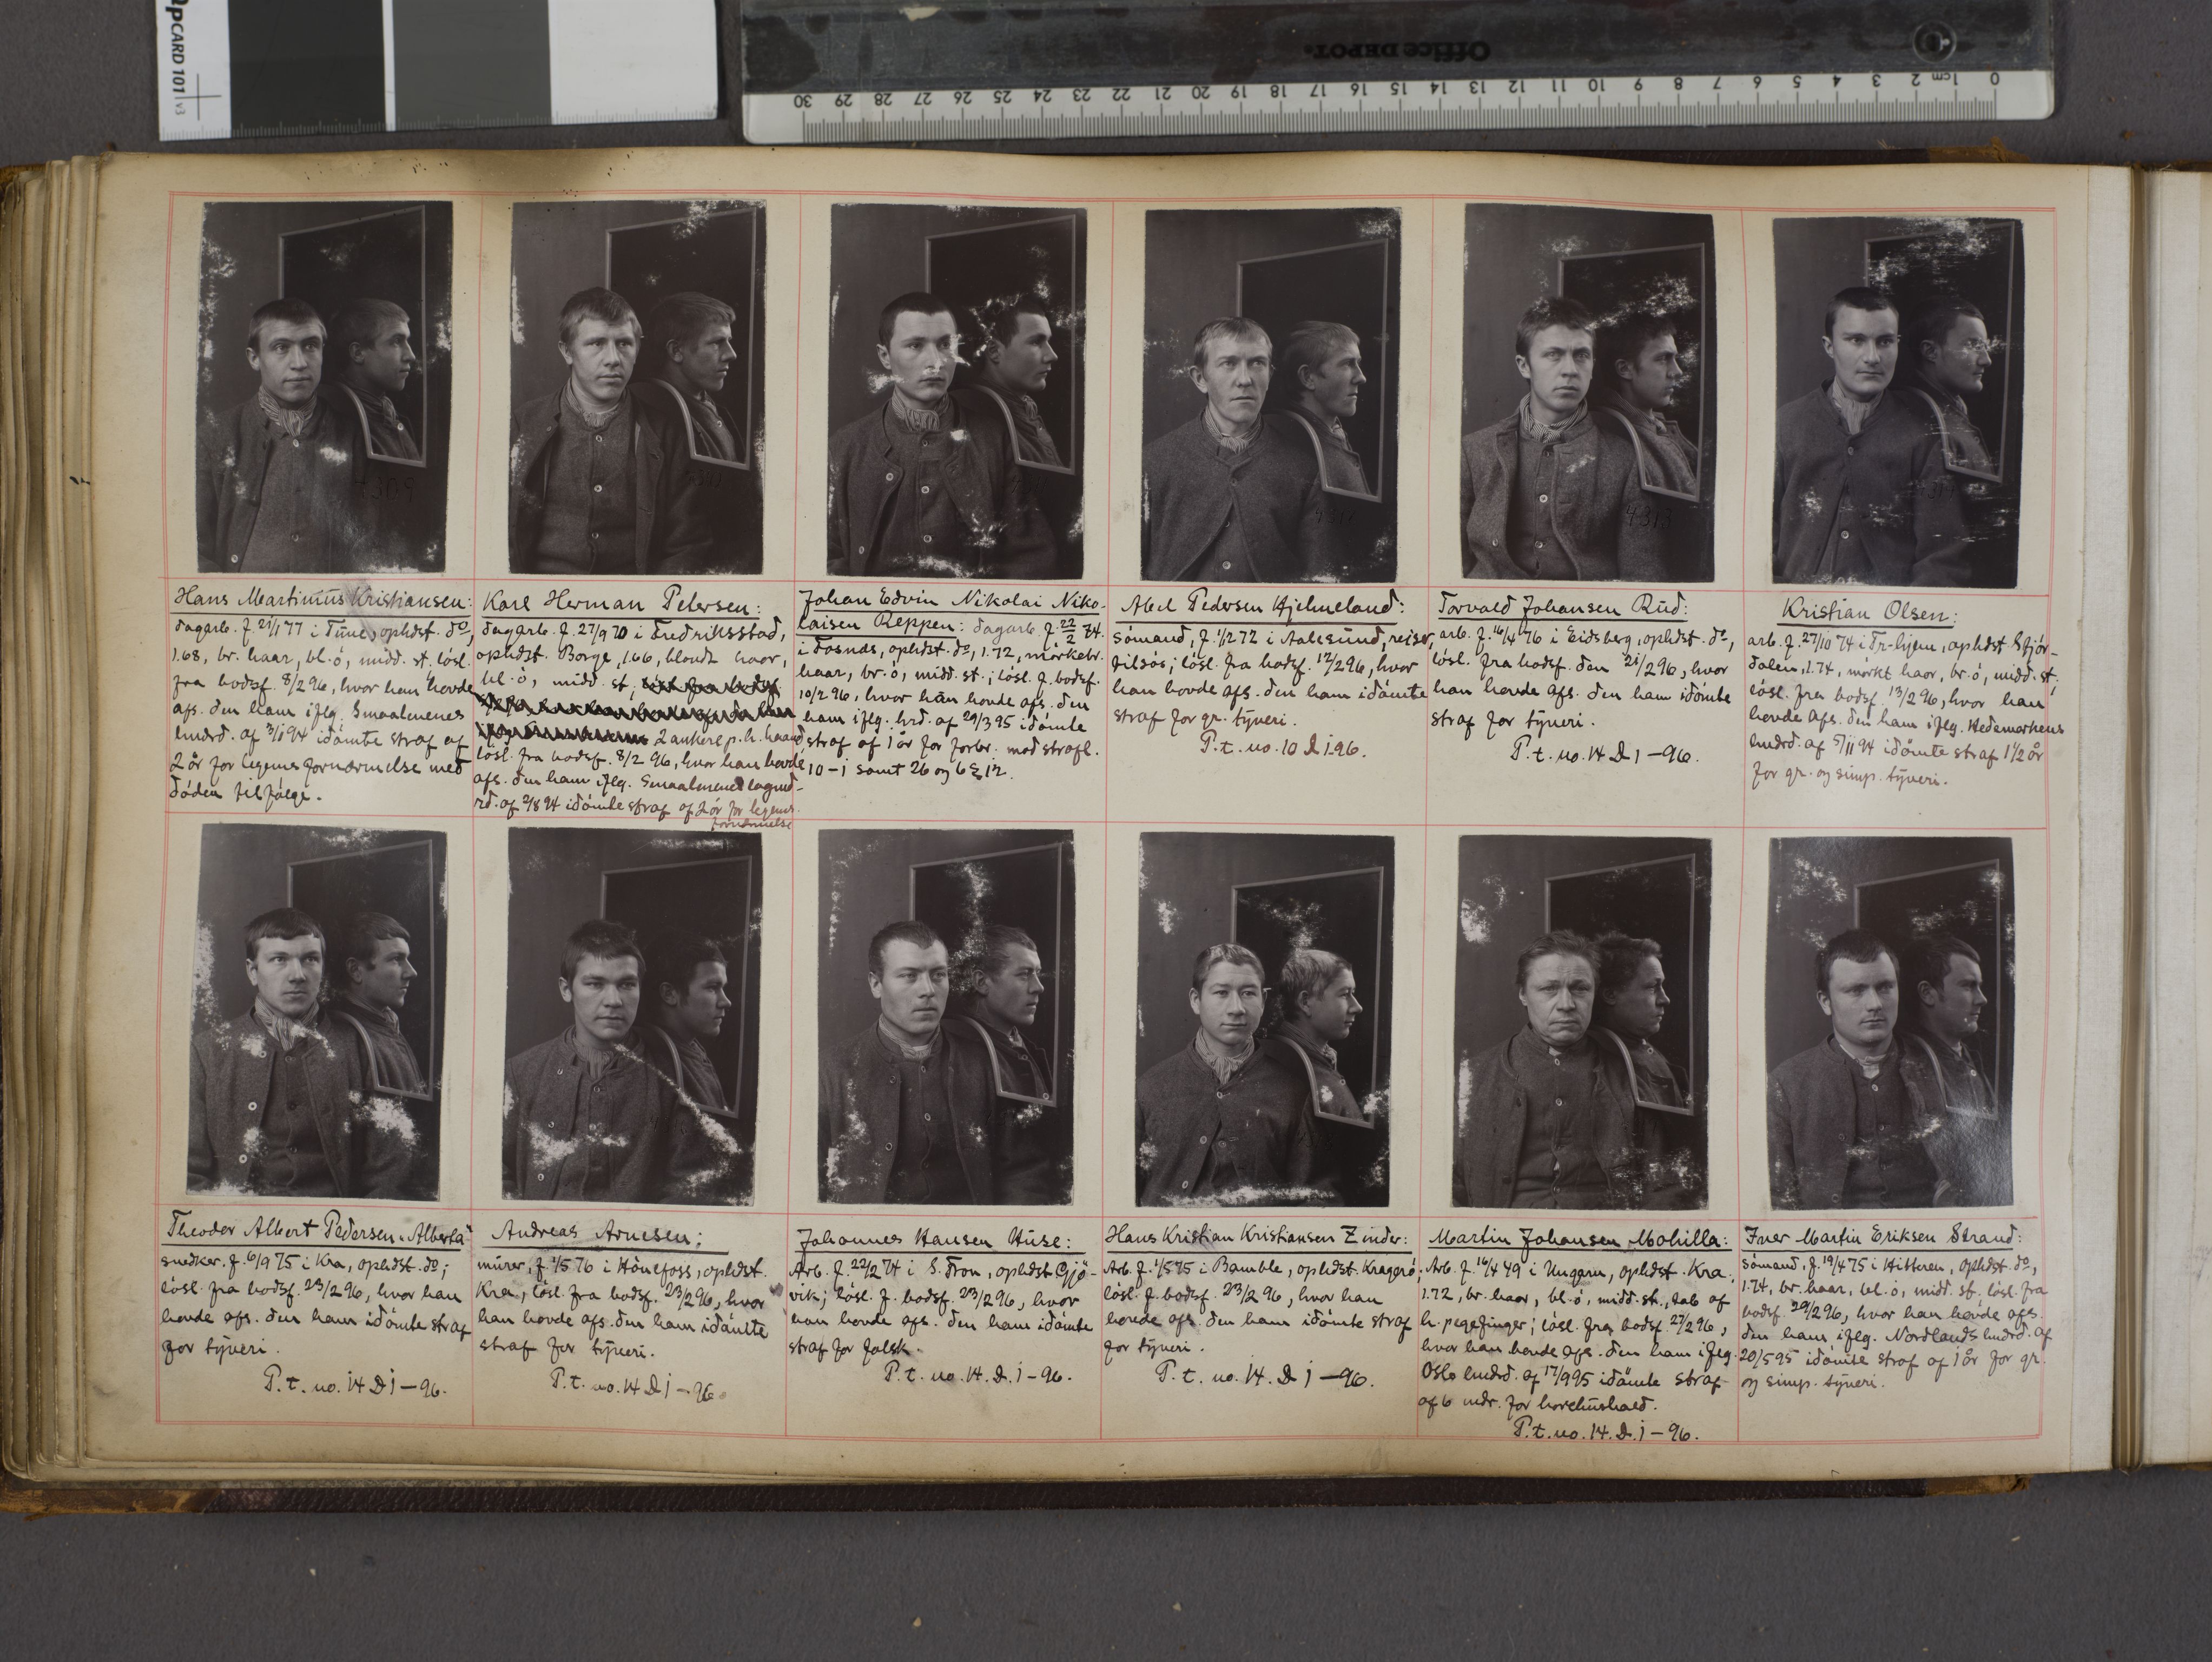 CARD 101 v3
Office DEPOT
0 1cm 2 3 4 5 6 7 8 9 10 11 12 13 14 15 16 17 18 19 20 21 22 23 24 25 26 27 28 29 30
4309
4313
Hans Martinius Kristiansen:
dagarb. f. 21/1 77 i Tune, ophdst. do,
1.68, br. haar, bl. ö, midd. st. lösl.
fra bodsf. 8/2 96, hvor han havde
afs. den ham iflg. Smaalenenes
lmdrd. af 3/1 94 idömte straf af
2 år for legemsfornærmelse med
döden tilfölge.
Karl Herman Petersen:
dagarb. f. 27/9 70 i Fredriksstad,
ophdst. Borge, 1.66, blondt haar,
bl. ö, midd. st,
2 ankere p. h. haand
lösl. fra bodsf. 8/2 96, hvor han havde
afs. den ham iflg. Smaalenenes lagmd-
rd. af 2/8 94 idömte straf af 2 år for legems
fornærmelse
Johan Edvin Nikolai Niko-
laisen Reppen: dagarb. f. 22/2 74.
i Fosnæs, ophdst. do, 1.72, mörkebr.
haar, br. ö, midd. st.; lösl. f. bodsf.
10/2 96, hvor han havde afs. den
ham iflg. hrd. af 29/3 95 idömte
straf af 1 år for forbr. mod strafl.
10-1 samt 26 og 6 § 12.
Abel Pedersen Hjelmeland:
sömand, f. 1/2 72 i Aalesund, reiser
tilsös; lösl. fra bodsf. 12/2 96, hvor
han havde afs. den ham idömte
straf for gr. tyveri.
P. t. no. 10 D 1 96.
Torvald Johansen Rud:
arb. f. 16/4 76 i Eidsberg, ophdst. do,
lösl. fra bodsf. den 21/2 96, hvor
han havde afs. den ham idömte
straf for tyveri.
P. t. no. 14 D 1-96.
Kristian Olsen:
arb. f. 27/10 74 i Tr.hjem, ophdst Stjör-
dalen, 1.74, mörkt haar, br. ö, midd. st,
lösl. fra bodsf. 13/2 96, hvor han
havde afs. den ham iflg. Hedemarkens
lmdrd. af 5/11 94 idömte straf 1 1/2 år
for gr. og simp. tyveri.
Theodor Albert Pedersen. Alberta"
snedker. f. 6/9 75 i Kra, ophdst. do;
lösl. fra bodsf. 23/2 96, hvor han
havde afs. den ham idömte straf
for tyveri.
P. t. no. 14 D 1-96.
Andreas Arnesen:
murer, f. 1/5 76 i Hönefoss, ophdst.
Kra; lösl. fra bodsf. 23/2 96, hvor
han havde afs. den ham idömte
straf for tyveri.
P. t. no. 14 D 1-96.
Johannes Hansen Huse:
Arb. f. 22/2 74 i S. Fron, ophdst Gjö-
vik; lösl. f. bodsf. 23/2 96, hvor
han havde afs. den ham idömte
straf for falsk.
P. t. no. 14. D. 1-96.
Hans Kristian Kristiansen Zinder:
Arb. f. 1/5 75 i Bamble, ophdst. Kragerö;
lösl. f. bodsf. 23/2 96, hvor han
havde afs. den ham idömte straf
for tyveri.
P. t. no. 14. D 1-96.
Martin Johansen Mohilla:
Arb. f. 16/4 49 i Ungarn, ophdst. Kra.,
1.72, br. haar, bl. ö, midd. st., tab af
h. pegefinger; lösl. fra bodsf. 27/2 96,
hvor han havde afs. den ham iflg.
Oslo lmdrd. af 17/9 95 idömte straf
af 6 mdr. for horehushold.
P. t. no. 14. D. 1-96.
Iver Martin Eriksen Strand:
sömand, f. 19/4 75 i Hitteren, ophdst. do,
1.74, br. haar, bl. ö, midd. st. lösl. fra
bodsf. 29/2 96, hvor han havde afs.
den ham iflg. Nordlands lmdrd. af
20/5 95 idömte straf af 1 år for gr.
og simp. tyveri.